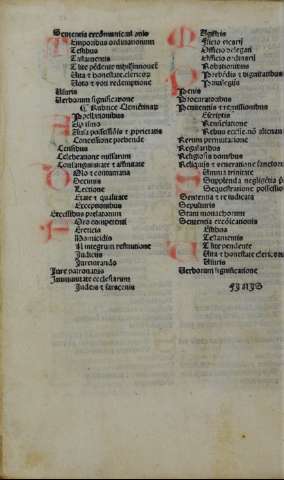 Sententia excõmunicationis
Temporibus ordinationum
Testibus
Testamentis
Ut lite pẽdente nihil innouet̃
Vita & honestate clericoɤ
Voto & voti redemptione
Usuris
Verborum significatione
Rubrice Clementinaɤ
Appellationibus
Baptismo
Causa possessiõis & proprietatis
Concessione prebende
Censibus
Celebratione missarum
Consanguinitate & affinitate
Dolo & contumatia
Decimis
Electione
Etate & qualitate
Exceptionibus
Excessibus prelatorum
Foro competenti
Hereticis
Homicidio
In integrum restitutione
Judiciis
Jureiurando
Jure patronatus
Immunitate ecclesiarum
Judeis & saracenis
Magistris
Officio vicarii
Officio delegati
Officio ordinarii
Prebẽdis & dignitatibus
Privilegiis
Penis
Procuratoribus
Penitentiis & remissionibus
Rescriptis
Renunciatione
Rebus ecclesie nõ alienan
Rerum permutatione
Regularibus
Religiosis domibus
Reliquiis & veneratione sanctorũ
Summa trinitate
Supplenda negligẽtia
Sequestratione possessio
Sententia & re iudicata
Sepulturis
Statu monachorum
Sententia excõicationis
Testibus
Testamentis
Ut lite pendente
Vita & honestate clericoɤ
Usuris
Verborum significatione
FINIS